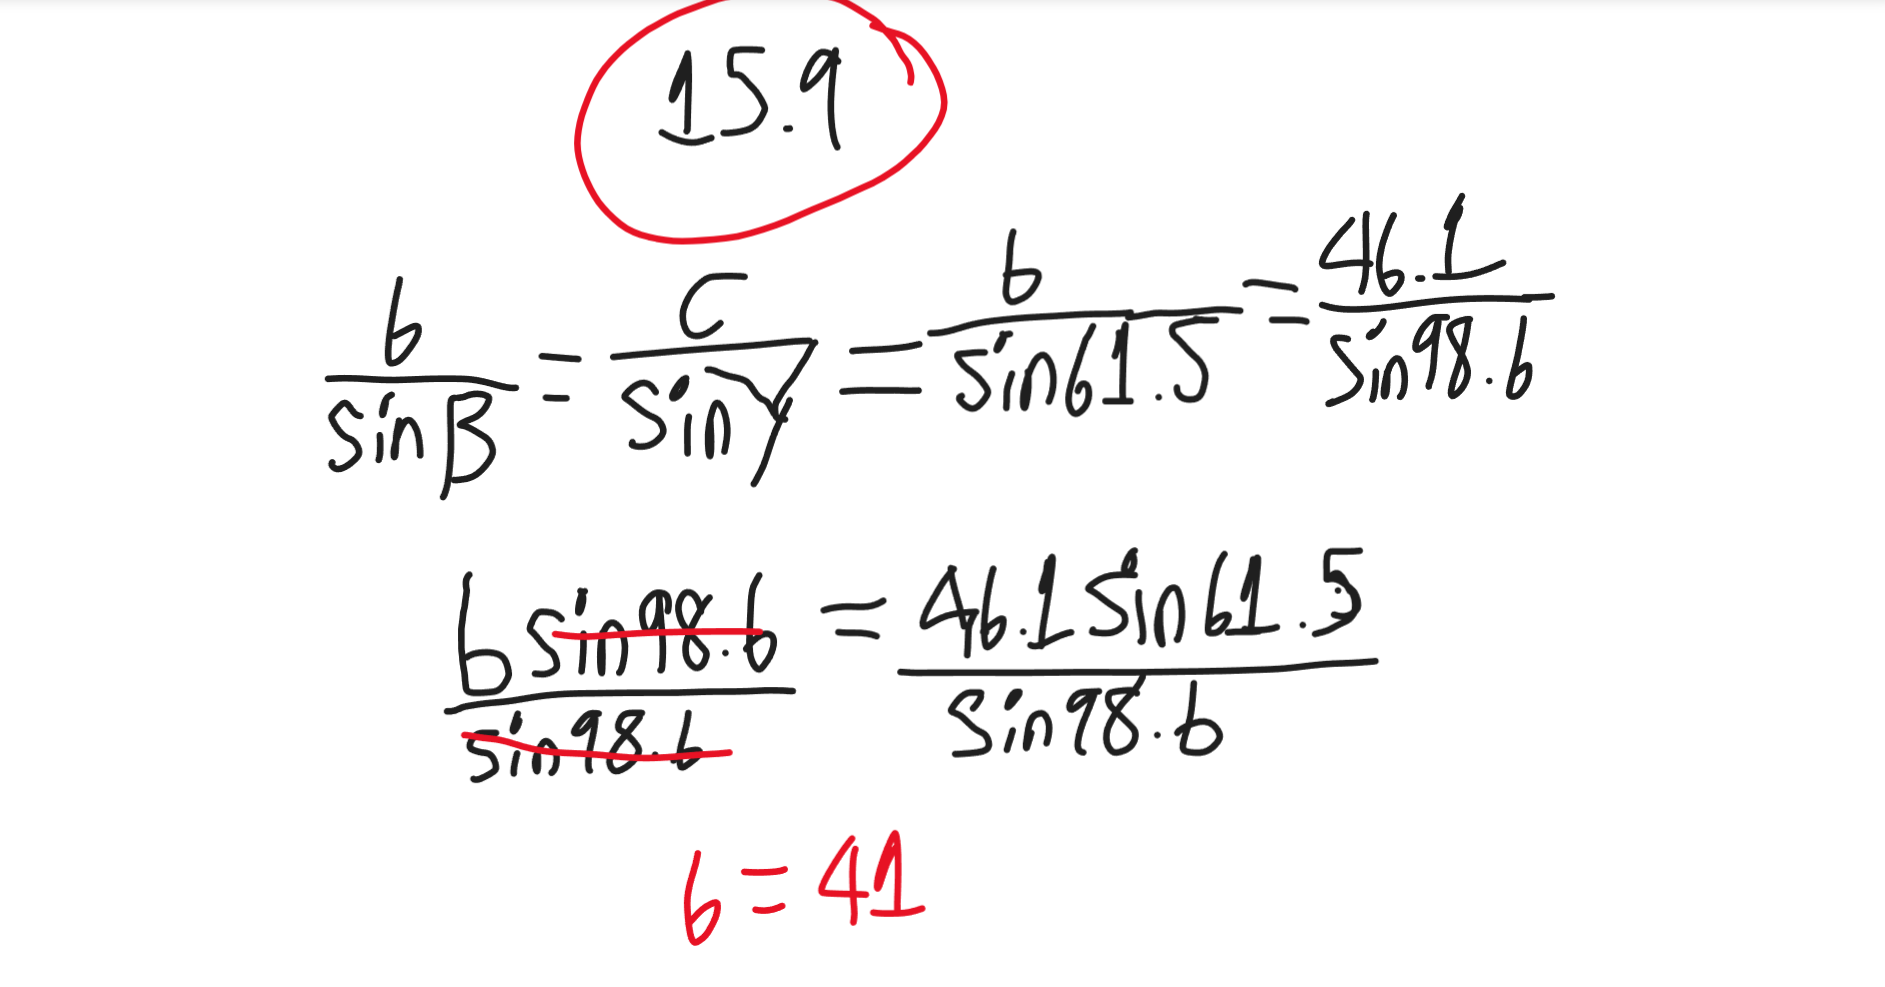 15.9
b/sin β = c/sin γ = b/sin61.5 = 46.1/sin98.6
b sin98.6/sin98.6 = 46.1 sin61.5/sin98.6
b = 41